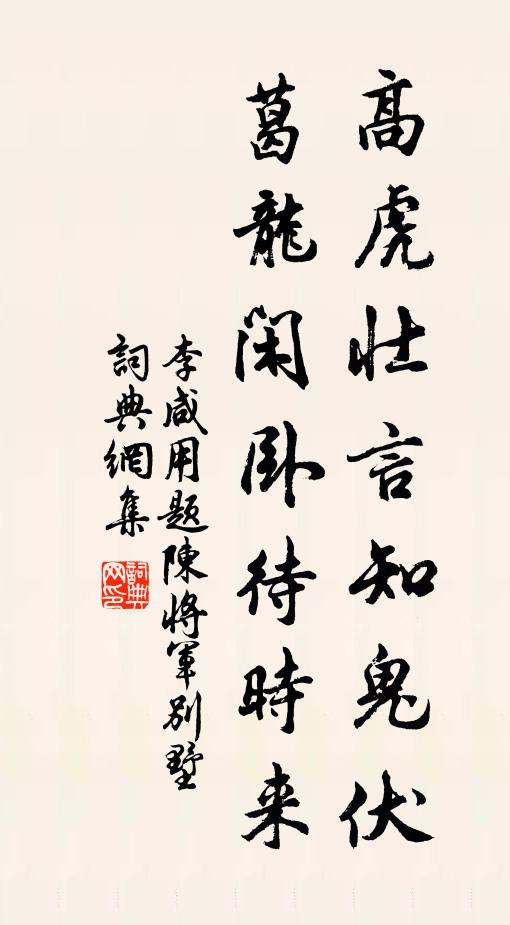 高虎壮言知鬼伏
葛龍閑卧待時来
李咸用題陳将軍別墅
詞典網集
詞典網印